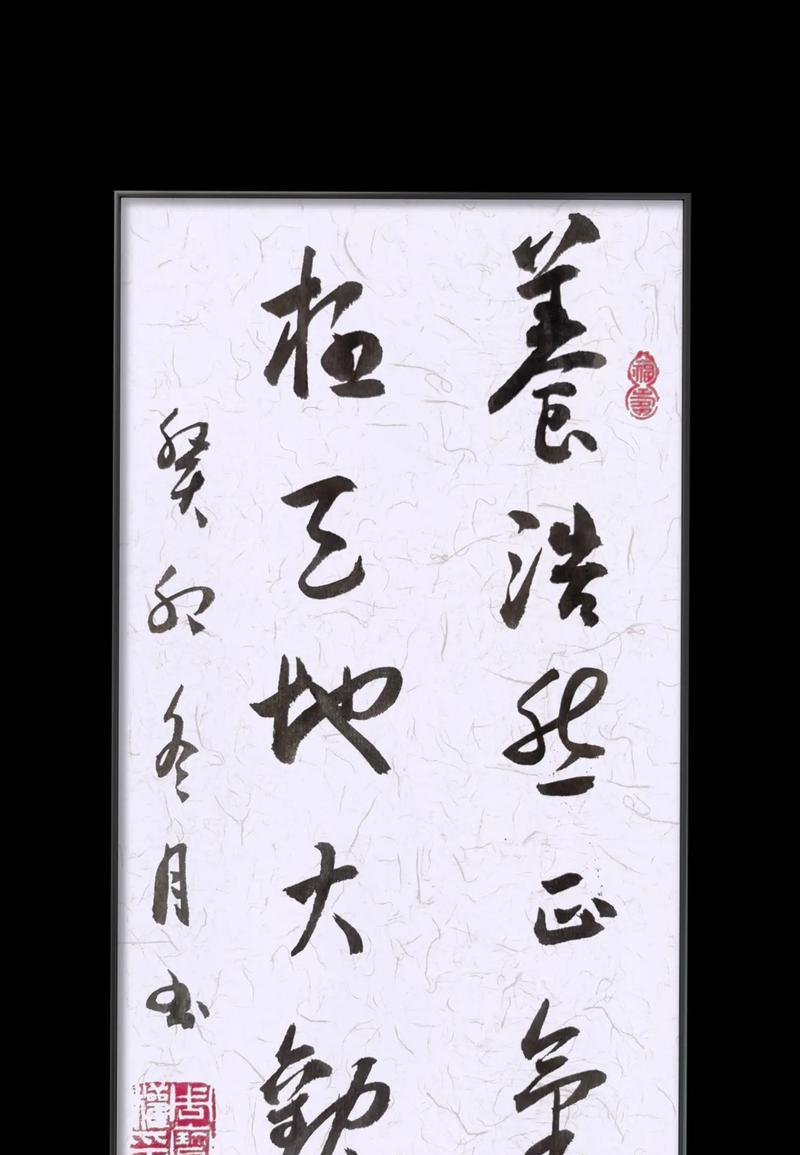 養浩然正氣
極天地大觀
癸卯冬月书